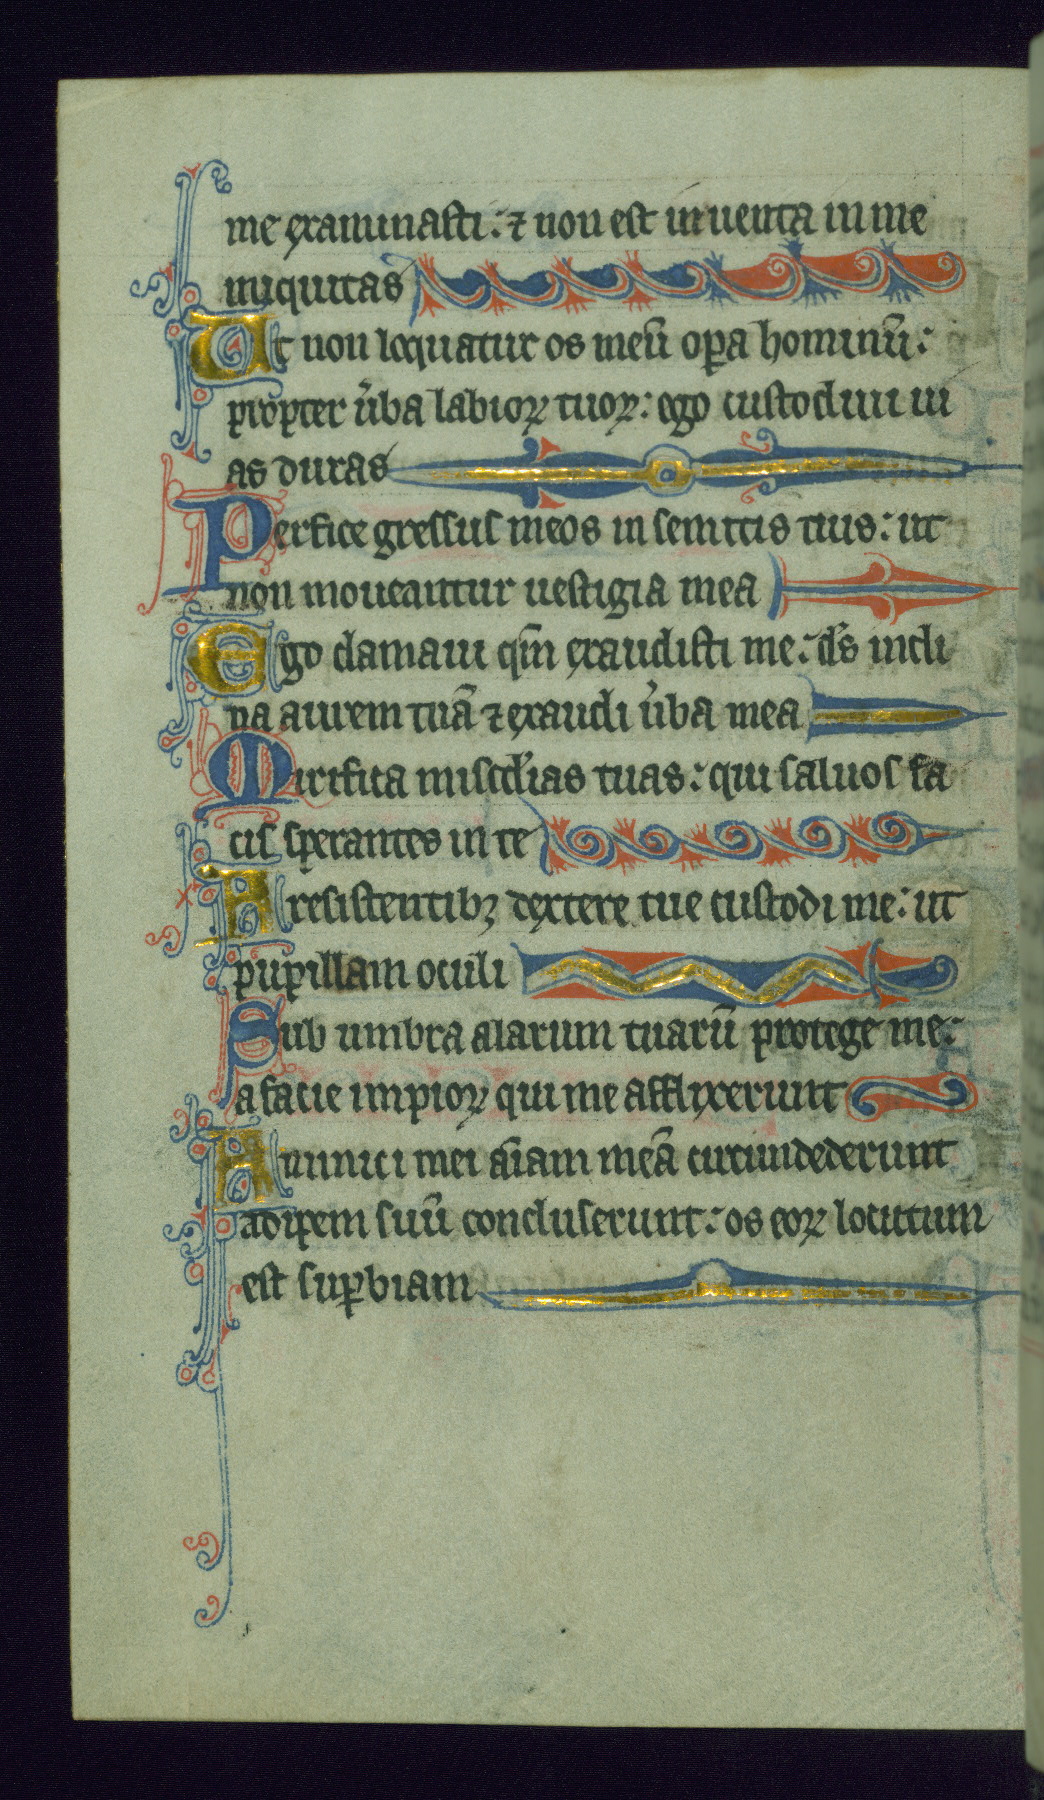 me examinasti: ⁊ non est inuenta in me
iniquitas
Ut non loquatur os meū opa hominū:
propter ũba labioꝝ tuoꝝ: ego custodiui ui
as duras
Perfice gressus meos in semitis tuis: ut
non moueantur uestigia mea
Ego clamaui qm̄ exaudisti me: ds̄ incli
na aurem tuā ⁊ exaudi ũba mea
Mirifica miscd̓ias tuas: qui saluos fa
cis sperantes in te
A resistentibꝫ dextere tue custodi me: ut
pupillam oculi
Sub umbra alarum tuarū protege me:
a facie impioꝝ qui me afflixerunt
Inimici mei aīam meā circumdederunt
adipem suū concluserunt: os eoꝝ locutum
est suꝑbiam